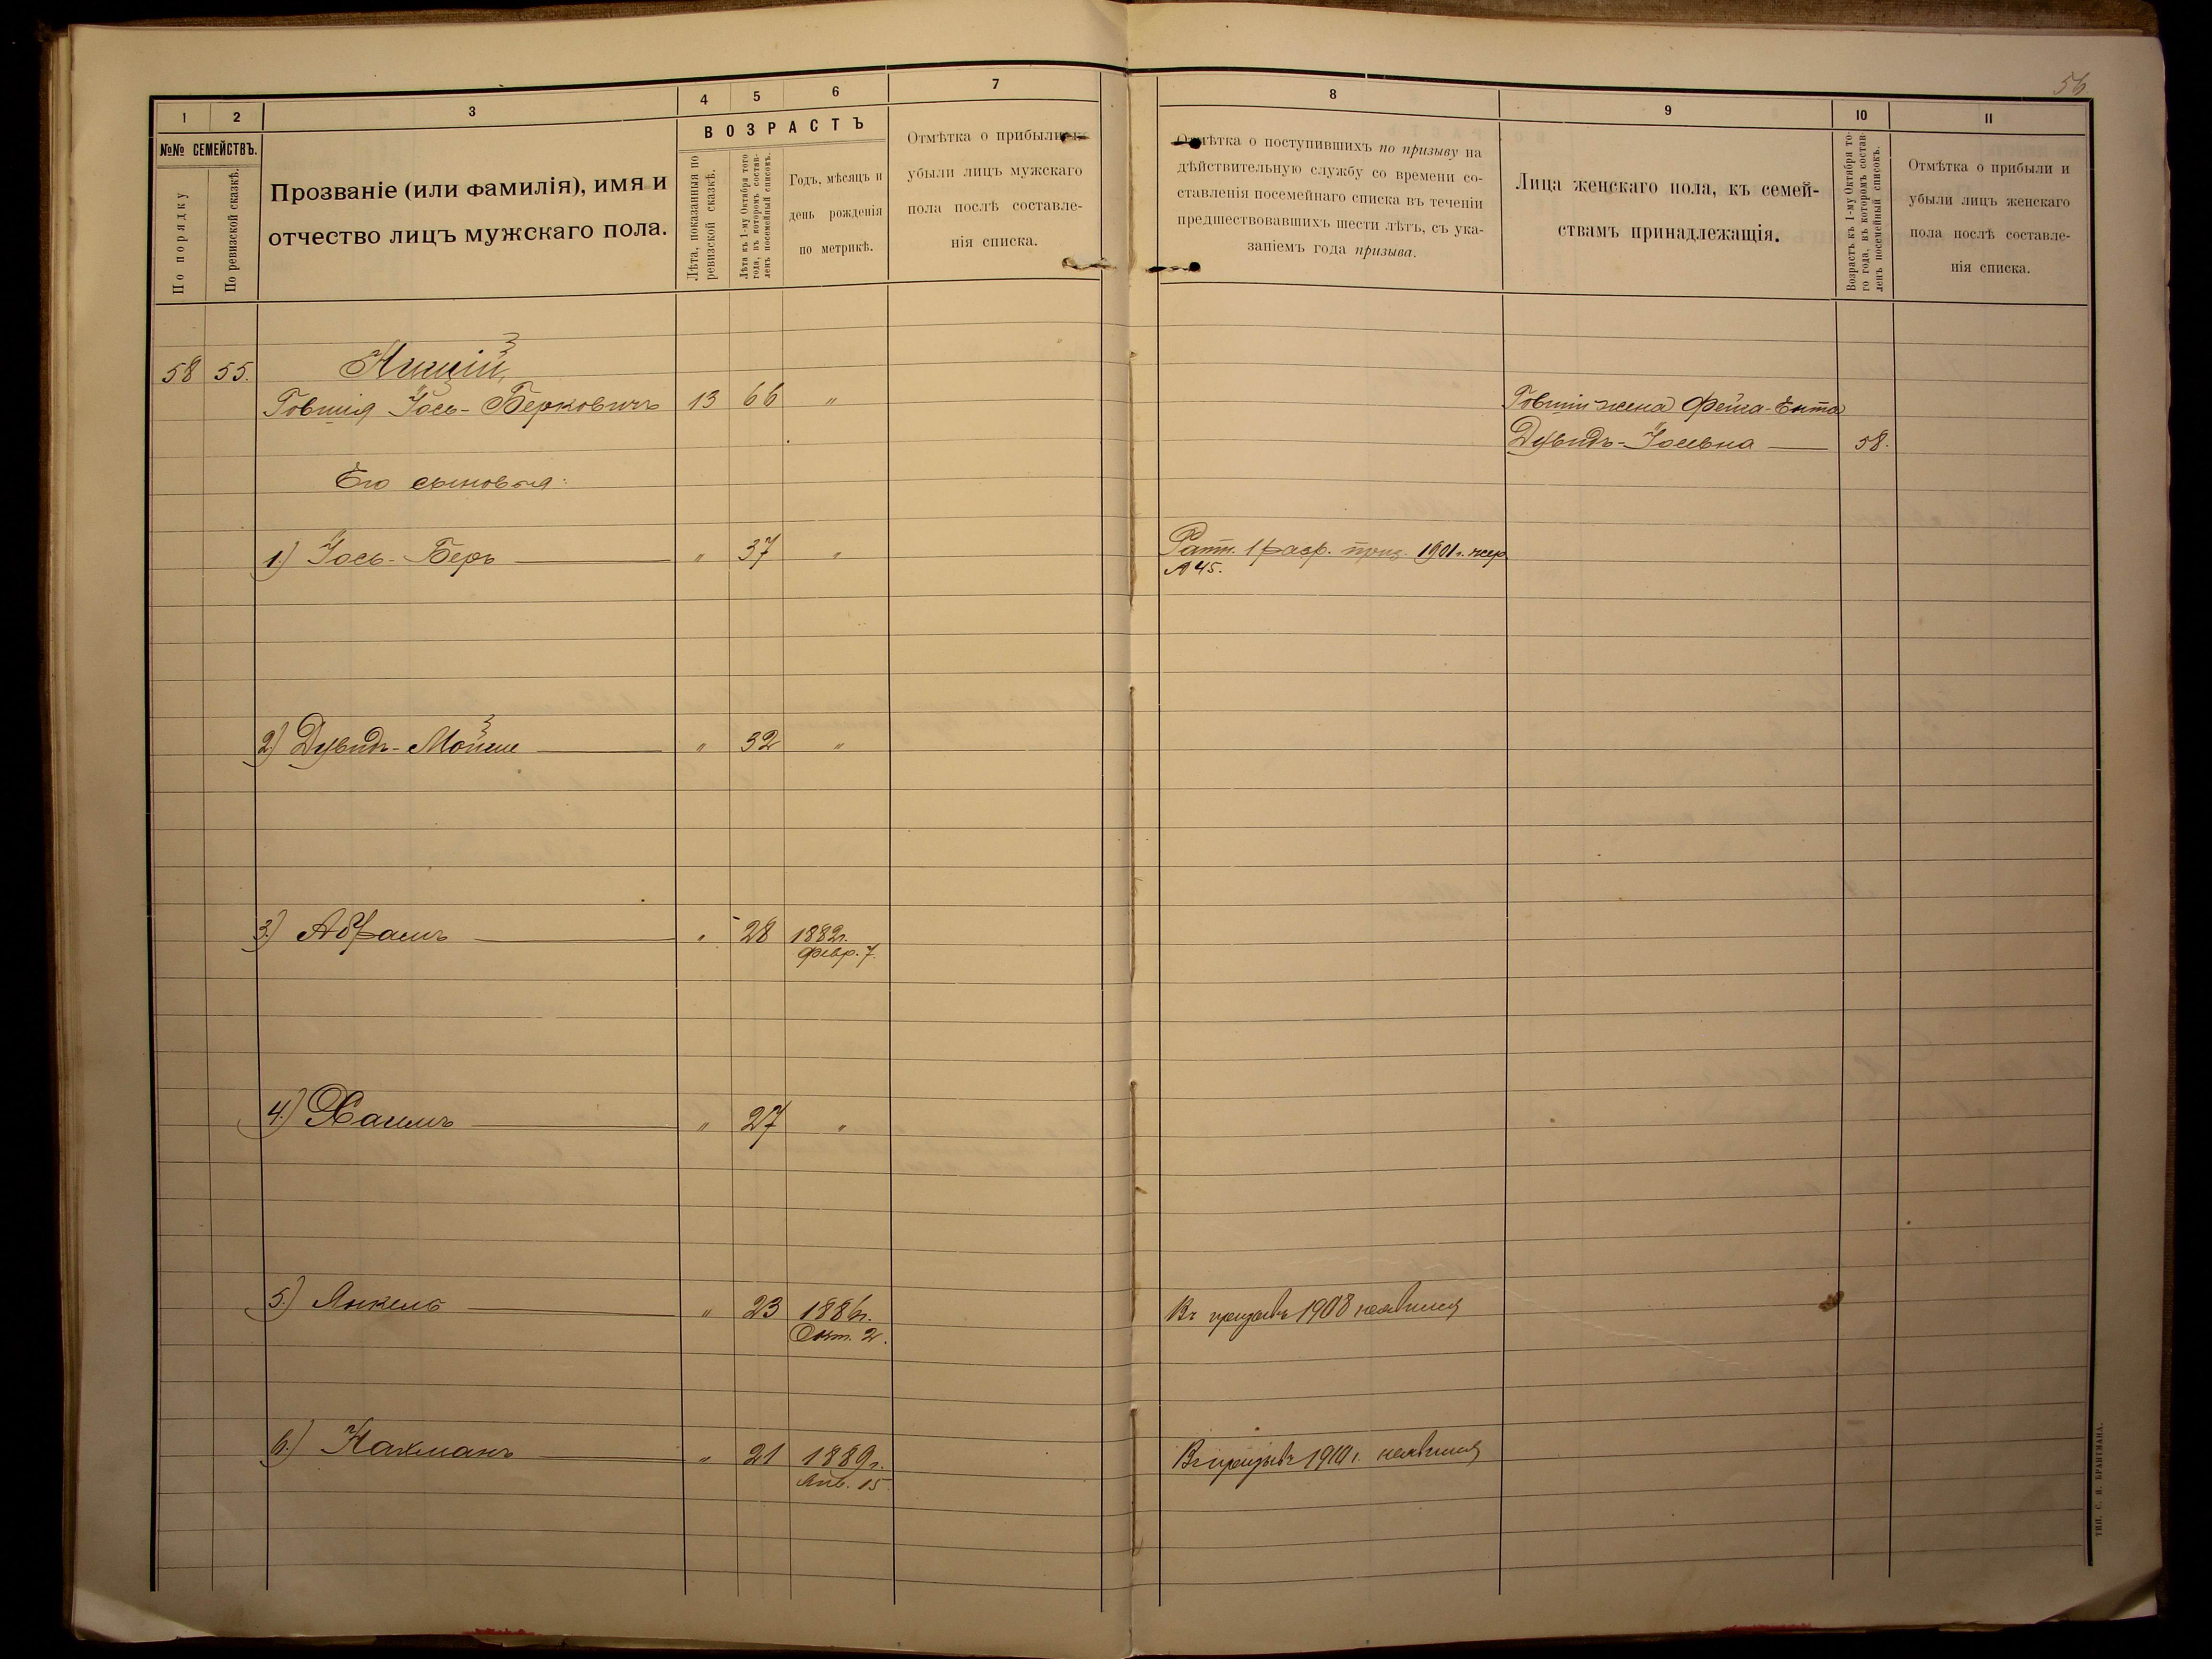 56
1 2 3 4 5 6 7
№№ СЕМЕЙСТВЪ.
По порядку
По ревизской сказкѣ.
Прозваніе (или фамилія), имя и
отчество лицъ мужскаго пола.
ВОЗРАСТЪ
Лѣта, показанныя по
ревизской сказкѣ.
Лѣта къ 1-му Октября того
года, въ которомъ состав-
ленъ посемейный списокъ.
Годъ, мѣсяцъ и
день рожденія
по метрикѣ.
Отмѣтка о прибыли
убыли лицъ мужскаго
пола послѣ составле-
нія списка.
8 9 10 11
Отмѣтка о поступившихъ по призыву на
дѣйствительную службу со времени со-
ставленія посемейнаго списка въ теченіи
предшествовавшихъ шести лѣтъ, съ ука-
заніемъ года призыва.
Лица женскаго пола, къ семей-
ствамъ принадлежащія.
Возрастъ къ 1-му Октября то-
го года, въ которомъ состав-
ленъ посемейный списокъ.
Отмѣтка о прибыли и
убыли лицъ женскаго
пола послѣ составле-
нія списка.
58 55.
Іось-Берковичъ 13 66 "
жена Фейга-Ента
Дувидъ-Іосевна 58.
Его сыновья:
1.) Іось-Беръ " 37 "
Ратн. 1 разр. приз. 1901 г. жер.
№ 45.
2) Дувидъ-Мойше " 32 "
3.) Абрамъ " 28 1882г.
Февр. 7.
4.) Хаимъ " 27 "
5.) Янкель " 23 1886г.
Окт. 2.
Въ призывъ 1908 неявился
6.) Нахманъ " 21 1889г.
Янв. 15
Въ призывъ 1910 г. неявился
ТИП. С. Н. БРАНГМАНА.